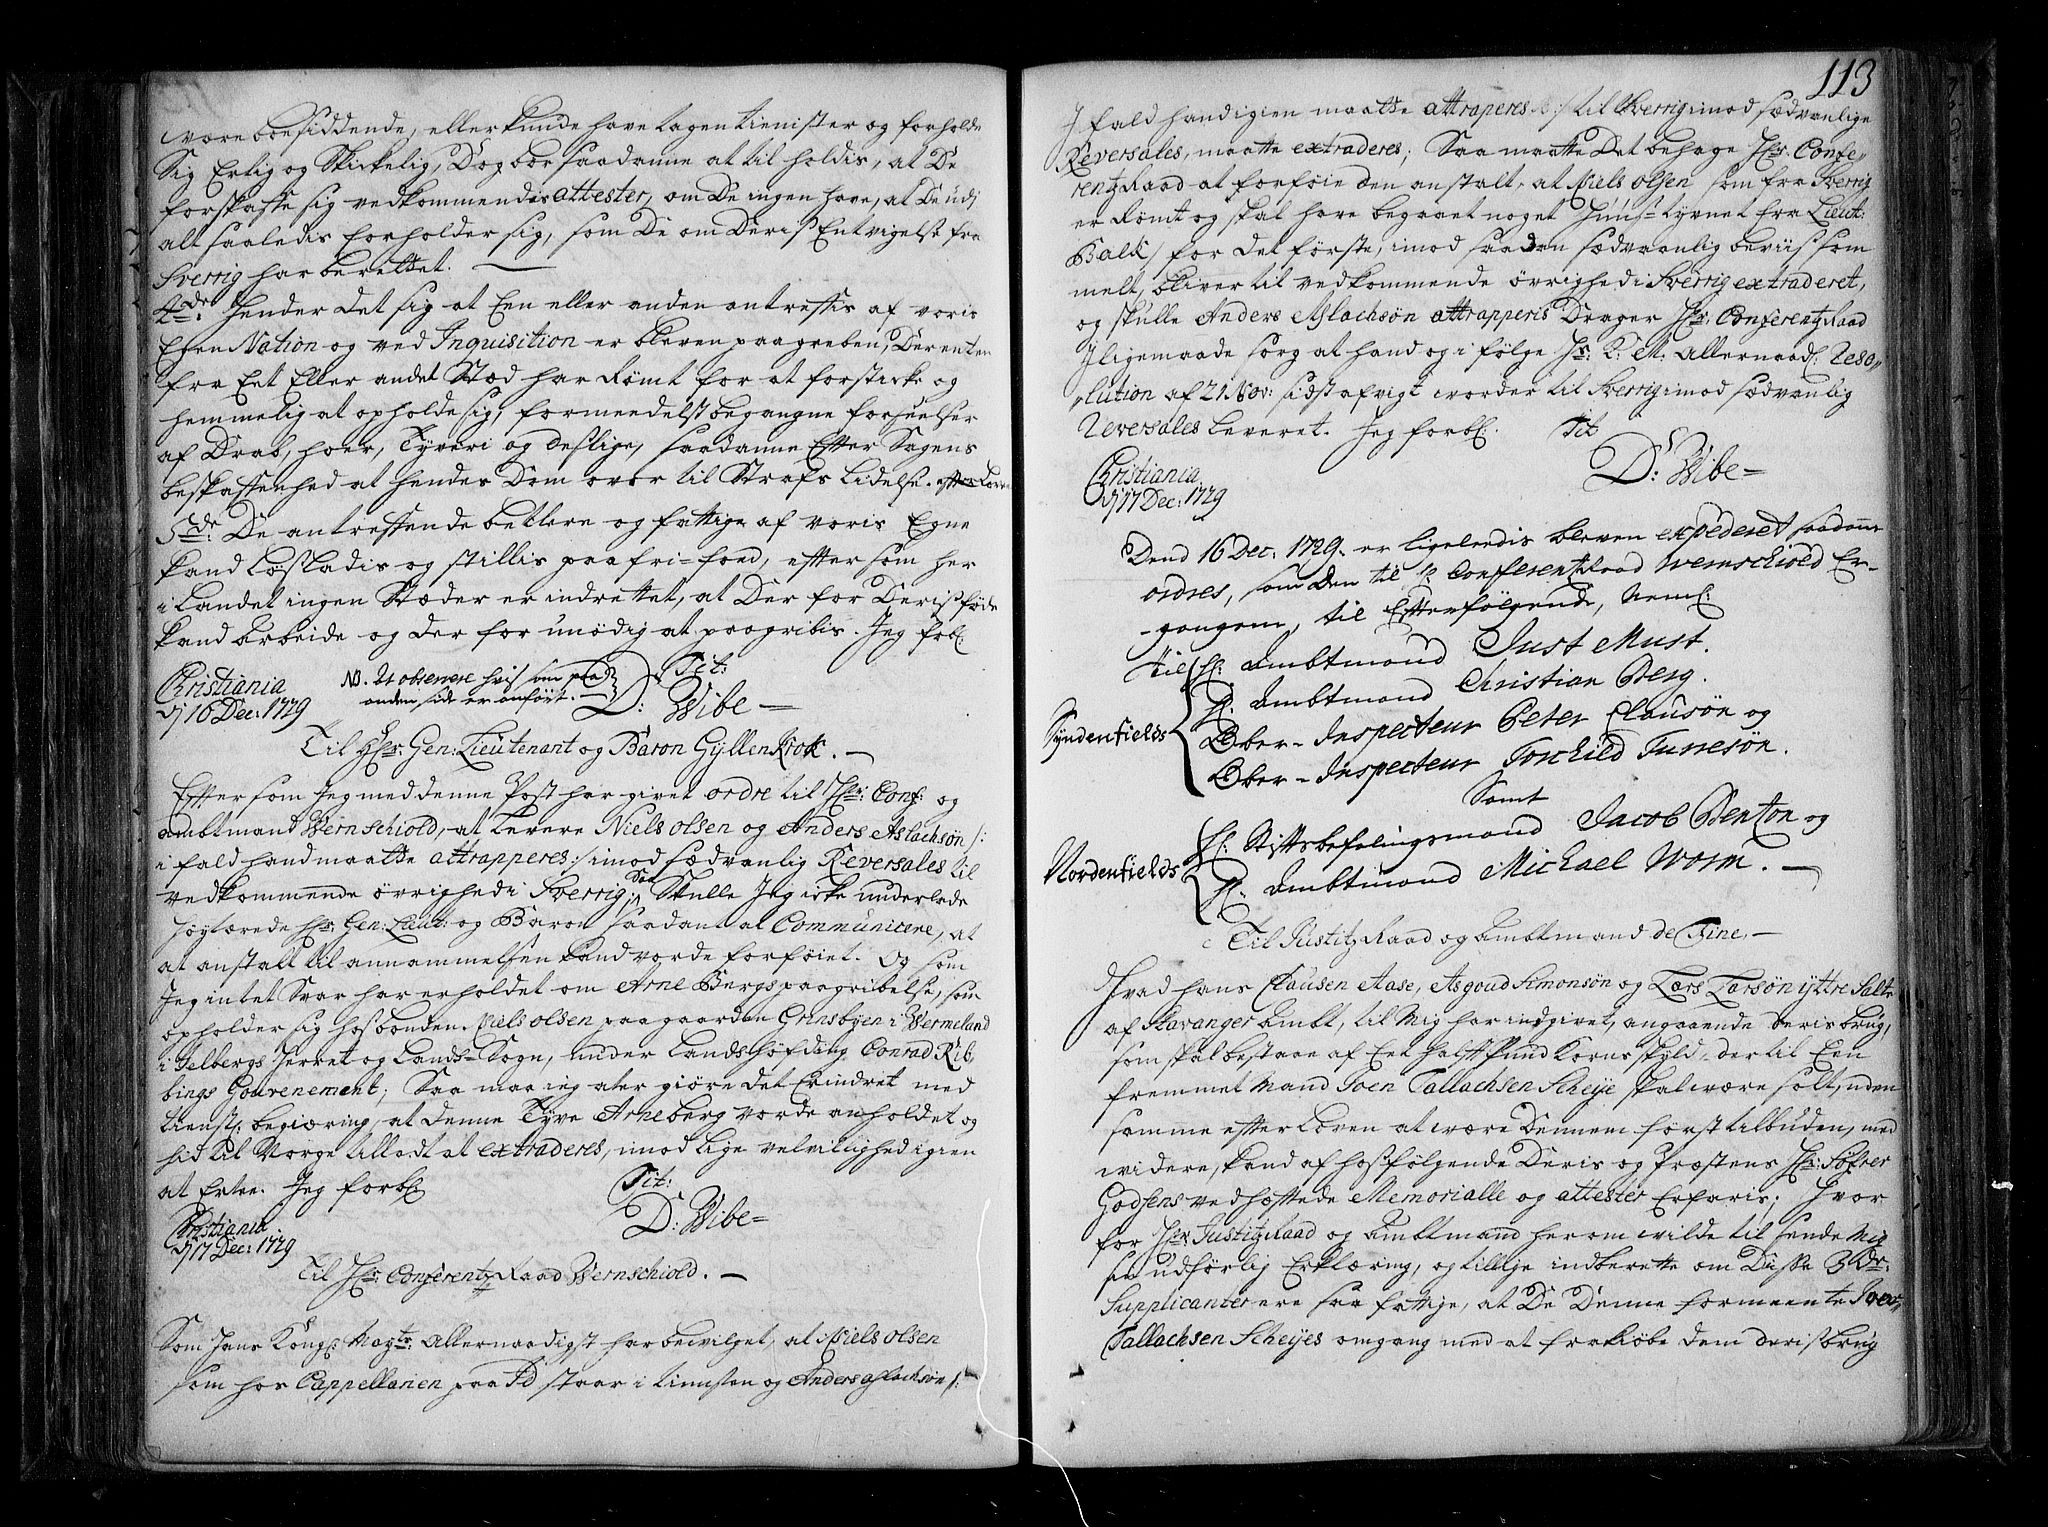 være boesiddende, eller kunde have tagen tienister og forholde
Sig Erlig og Skickelig, Dog bør saadanne at til holdis, at De
forskaffe sig vedkommendis attester, om De ingen have, at De udj
alt saaledis forholder sig, som De om Deris Entvigelse fra
Sverrig har berettet.
4de: Hender det sig at Een eller anden antreffis af voris
Egen Nation og ved Inquisition er bleven paagreben, Der enten
fra Eet Eller andet Stæd har Rømt for at forsticke og
hemmelig at opholde sig, formeedelst begangne forseelser
af Drab, hoer, Tyveri og deslige, saadanne Efter Sagens
beskaffenhed at hendes Dom over til Strafs Lidelse. efter Loven
5de: De antreffende betlere og fattige af voris Egne
kand Løsladis og stillis paa fri-foed, efter som her
i Landet ingen Stæder er indrettet, at Der for Deris føde
kand arbeide og der for unødig at paagribis. Jeg forbl:
Christiania NB. At observere hvis som paa Tit:
dj 16 Dec: 1729 anden side er anført. D: Wibe
Til Hr: Gen: Lieutenant og Baron Gyllenkrok.
Efter som Jeg med denne Post har givet ordre til Hr: Conf: og
ambtmand Wernschiold, at levere Niels olsen og Anders Aslachsøn /:
i fald hand maatte attrapperes :/ imod sædvanlig Reversales til
vedkommende øvrighed i Sverrig, Saa Skulle Jeg icke underlade
Høytærede Hr: Gen: Lieut: og Baron saadant at Communicere, at
at anstalt til annammelsen kand vorde forføiet. Og som
Jeg intet Svar har erholdet om Arne Bergs paagribelse, som
opholder sig hos bonden Niels olsen paa gaarden Grinsbyen i Vermeland
i Jelbergs Herret og Lands-Sogn, under Landshøfding Conrad Rib,
bings Gouvernement; Saa maa ieg ater giøre det Erindret med
tienstl: begiæring, at denne Tyve Arne berg vorde anholdet og
hid til Norge tilladt at extraderes, imod lige velvillighed igien
at Ertee. Jeg forbl: Tit:
Christiania D: Wibe
dj 17 Dec: 1729
Til Hr: Conferentz Raad Wernschiold.
Som Hans Kongl: Mayts: Allernaadigst har bevilget, at Niels olsen
som hos Cappellanen paa Id staar i tienesten og Anders aslachsøn /:
113
J fald hand igien maatte attraperes :/ til Sverrig imod sædvanlige
Reversales, maatte extraderes; Saa maatte Det behage Hr: Confe,,
rentz Raad at forføie den anstalt, at Niels olsen som fra Sverrig
er Rømt og skal have begaaet noget Huus-tyvnet fra Lieut:
Balk / for det første, imod saadan sædvaanlig beviis som
melt, bliver til vedkommende øvrighed i Sverrig extraderet,
og skulle Anders Aslachsøn attrapperis Drager Hr: Conferentz Raad
J ligemaade sorg at hand og i følge Hs: K: M: allernaadl: Reso,,
,,lution af 21 Nov: sidst afvigt worder til Sverrig imod sædvanlig
Reversales leveret. Jeg forbl: Tit
Christiania D: Wibe
dj 17 Dec: 1729
Dend 16 Dec. 1729. er ligeledis bleven expederet saadanne
ordres, som den til Hr. Conferentz Raad Wernschiold Er-
-gangen, til Efterfølgende, Neml:
Til Hr: Ambtmand Just Must.
Hr. Ambtmand Christian Berg.
Syndenfields Ober-Inspecteur Peter Clausøn og
Ober-Inspecteur Torchild Turresøn.
Samt
Hr: Stiftsbefalingsmand Jacob Benzon og
Nordenfields Hr. Ambtmand Michael Worm.
Til Justitz Raad og Ambtmand de Fine,
Hvad hans Clausen Aase, Asgoud Simonsøn og Lars Larsøn yttre Salte
af Stavanger Ambt, til Mig har indgivet, angaaende deris brug,
som skal bestaae af Eet halft Pund Korns skyld, der til Een
fremmet Mand Joen Tallachsen Scheije skal være solt, uden
samme efter Loven at være Dennem først tilbuden, med
widere, kand af hosfølgende Deris og Præstens Hr: Søfrer
Godsens vedhæftede Memorialle og attester Erfaris; Hvor
for Hr: Justitz Raad og Ambtmand herom wilde til sende Mig
sin udførlig Erklæring, og tillige indberette om Disse 3de:
Supplicanter ere saa fattige, at De Denne formeente Joen
Tallachsen Scheijes omgang med at frakiøbe dem deris brug